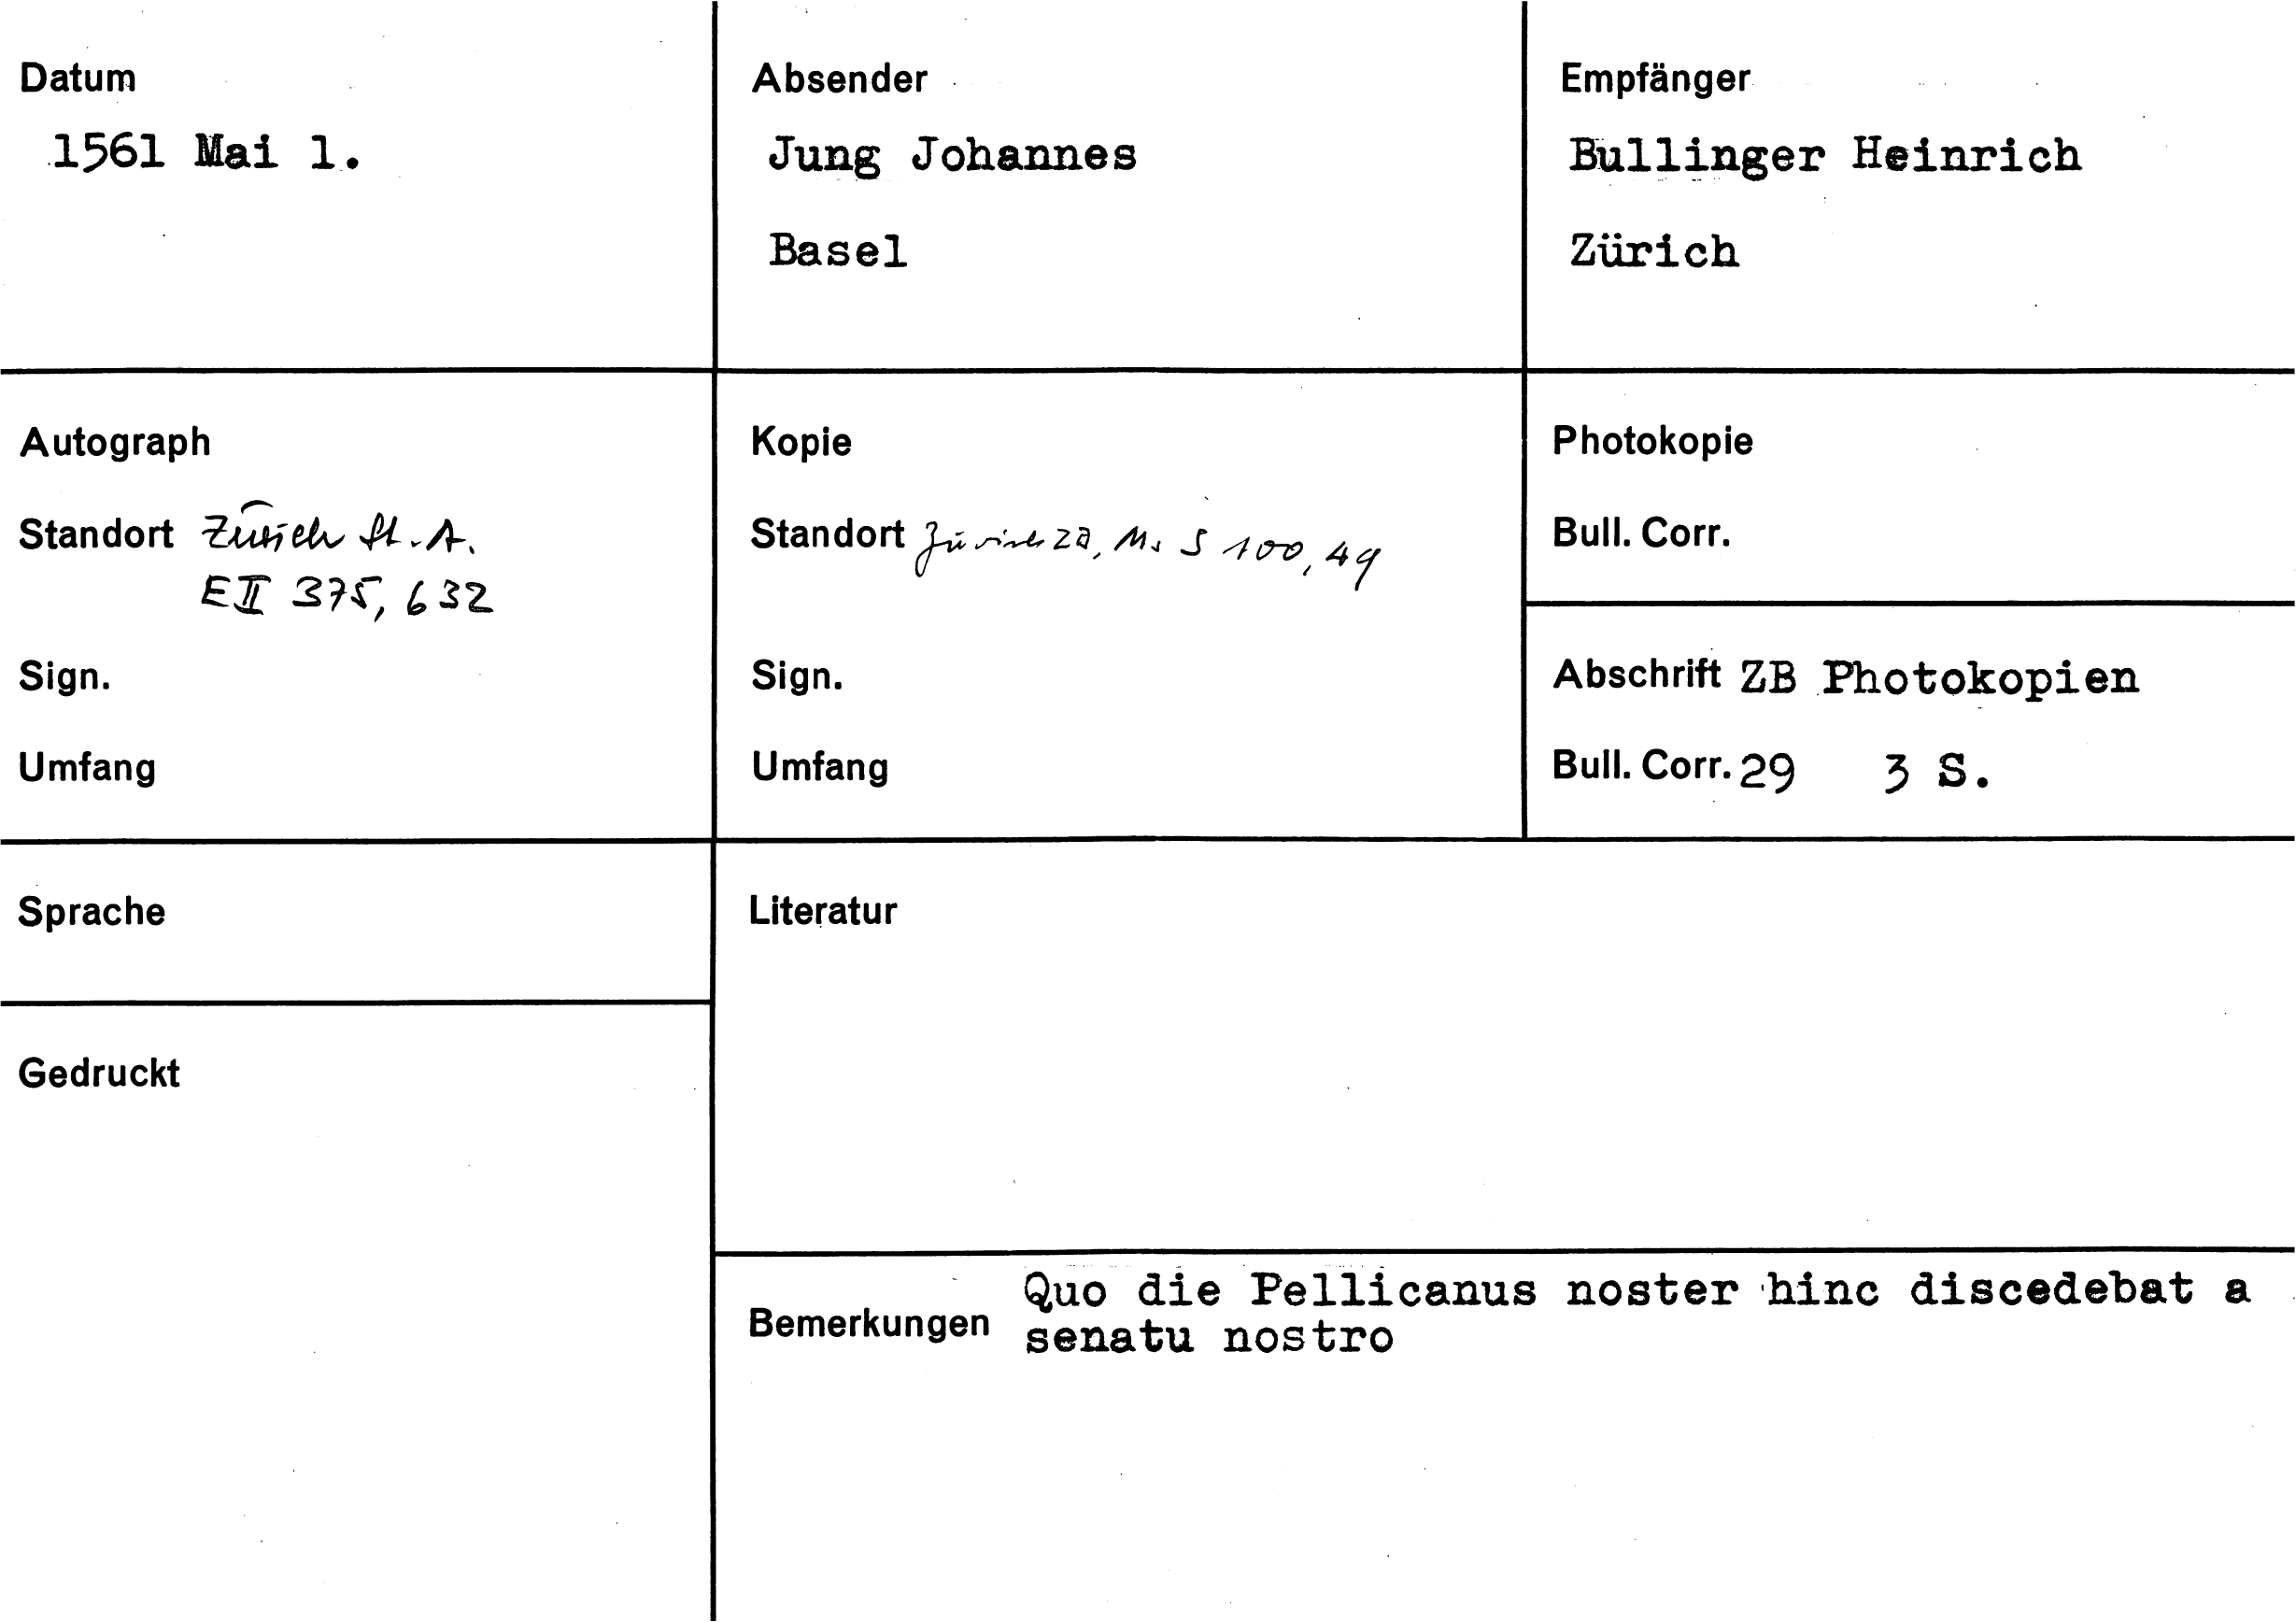 Datum
1561 Mai 1.
Absender
Jung Johannes
Basel
Empfänger
Bullinger Heinrich
Zürich
Autograph
Standort Zürich St.A.
E II 375, 632
Sign.
Umfang
Kopie
Standort Zürich ZB, Ms S 100, 49
Sign.
Umfang
Photokopie
Bull. Corr.
Abschrift ZB Photokopien
Bull. Corr. 29 3 S.
Sprache
Gedruckt
Literatur
Bemerkungen Quo die Pellicanus noster hinc discedebat a
senatu nostro